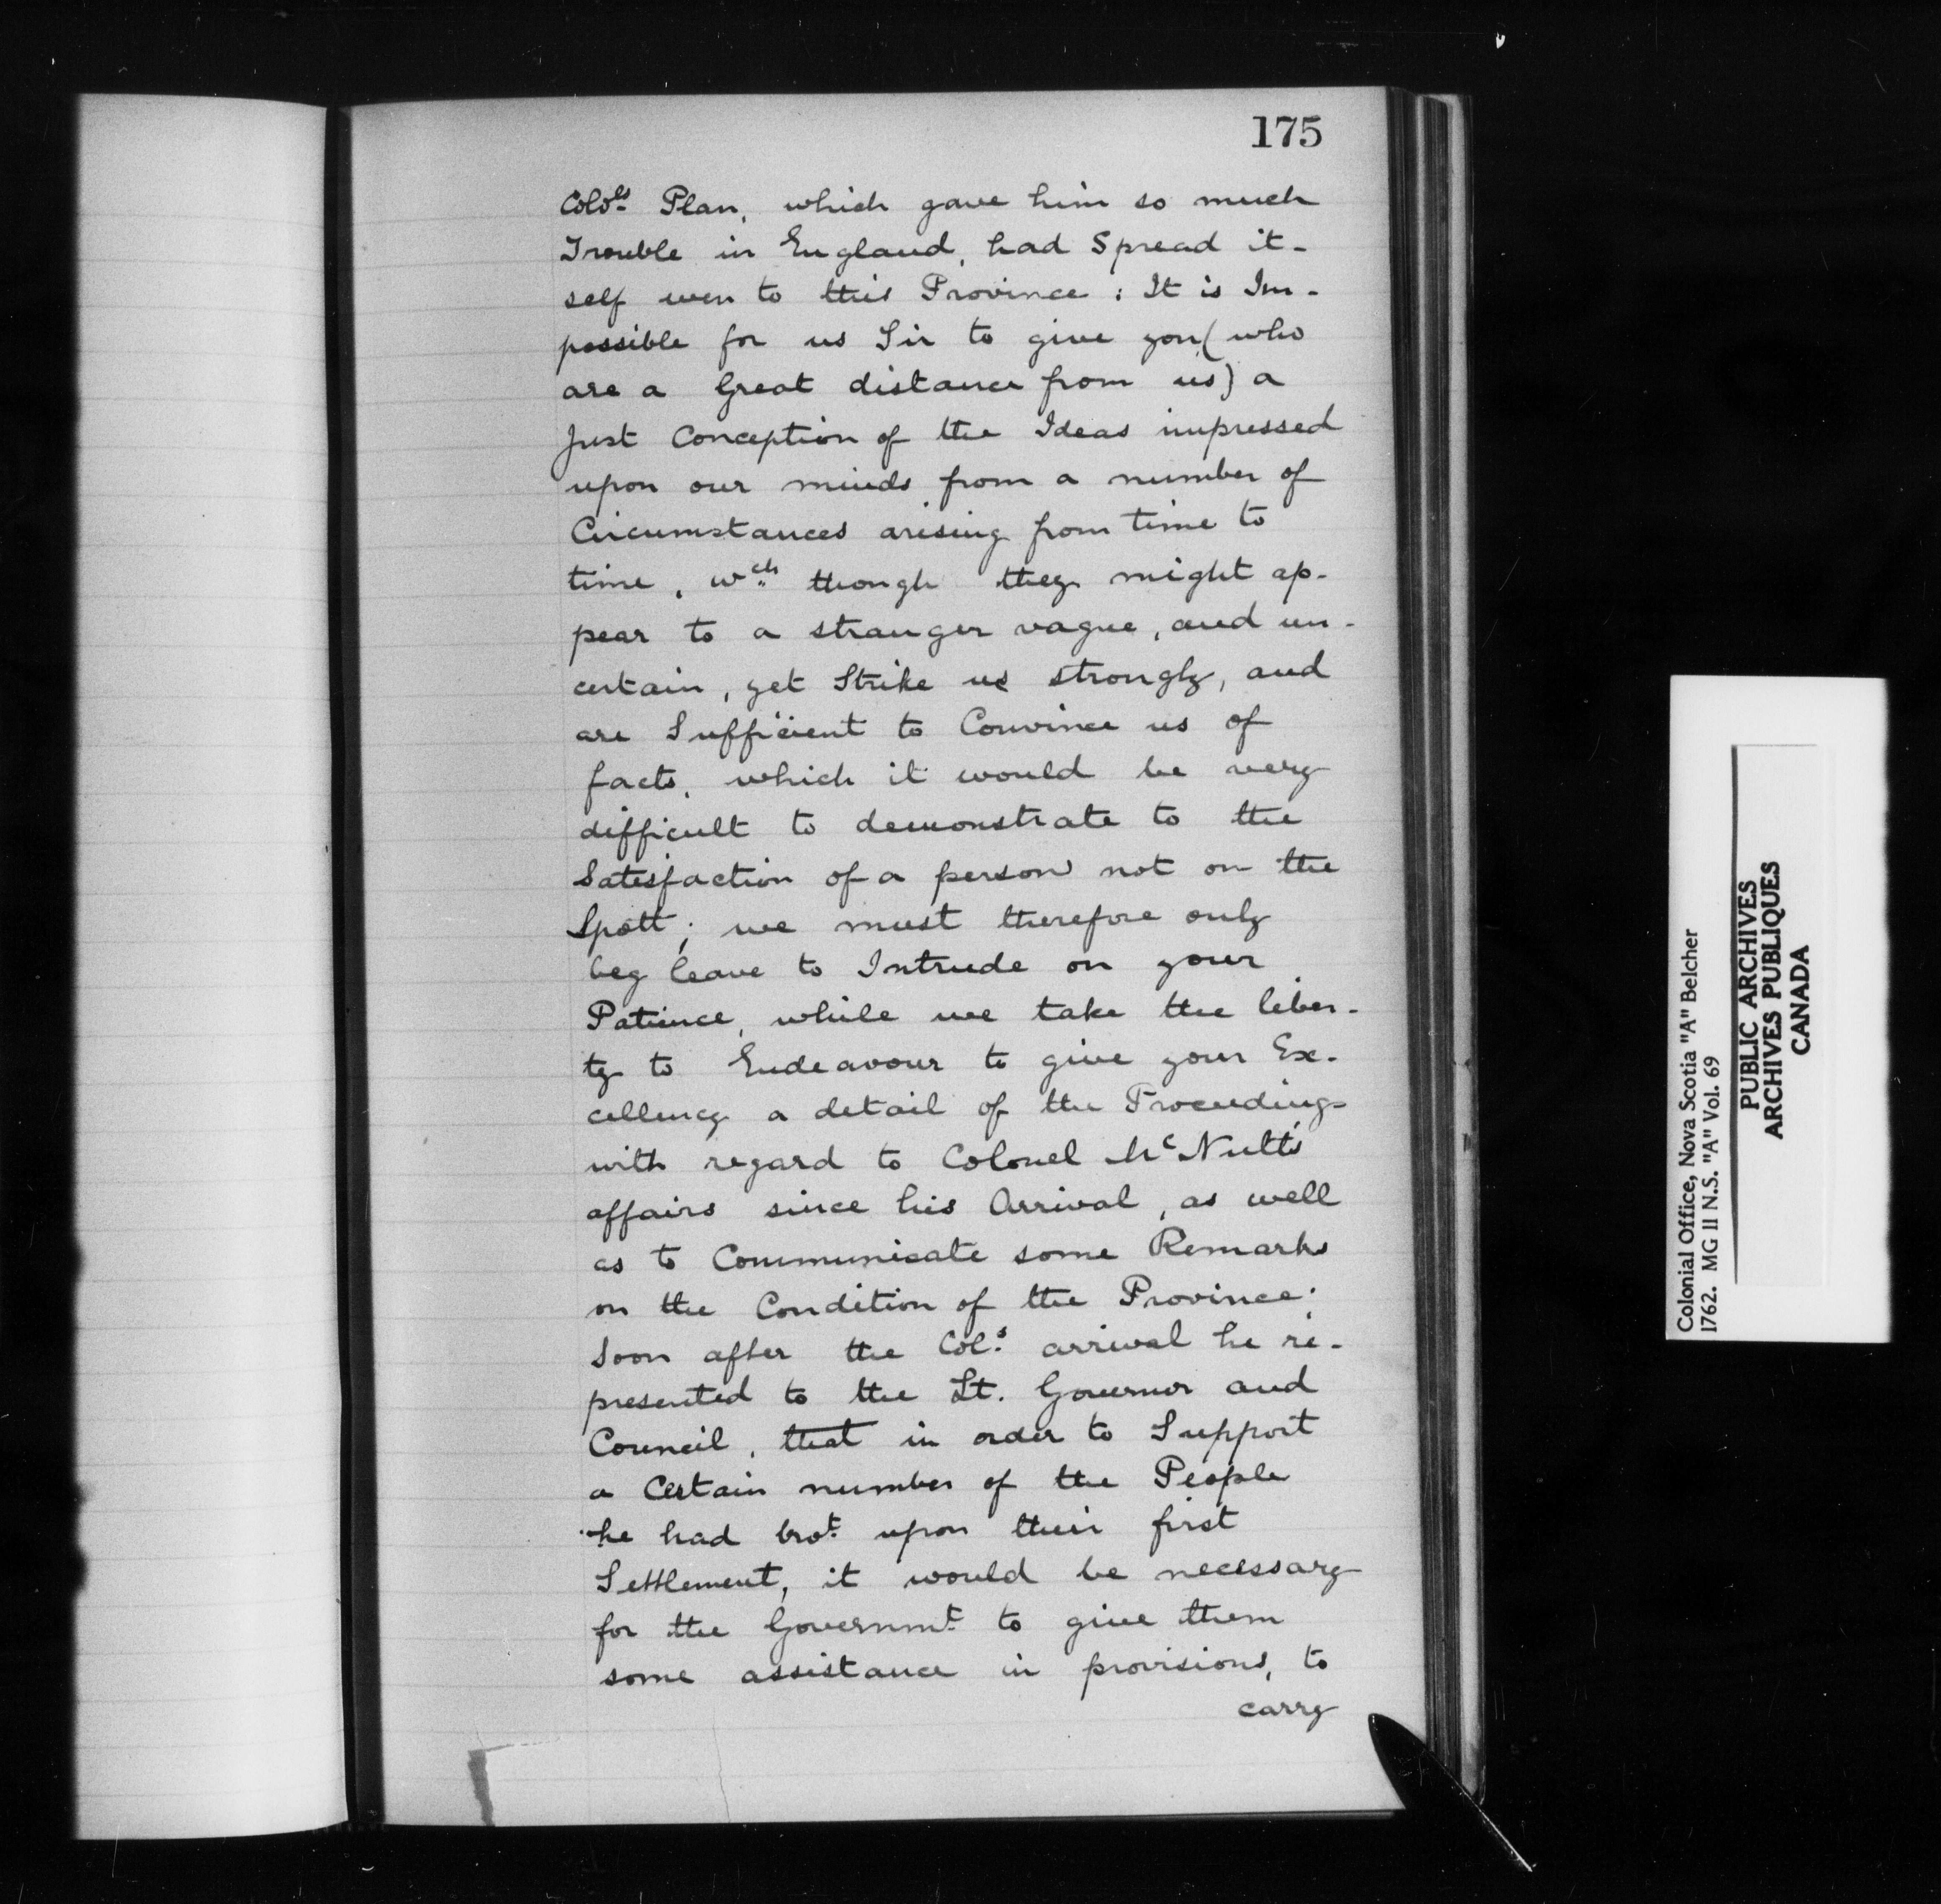 175
Colo.ls Plan, which gave him so much
Trouble in England, had Spread it-
self even to this Province : It is Im-
possible for us Sir to give you (who
are a Great distance from us) a
Just Conception of the Ideas impressed
upon our minds from a number of
Circumstances arising from time to
time, wch though they might ap-
pear to a stranger vague, and un-
certain, yet Strike us strongly, and
are Sufficient to Convince us of
facts, which it would be very
difficult to demonstrate to the
Satisfaction of a person not on the
Spott; we must therefore only
beg leave to Intrude on your
Patience, while we take the liber-
ty to Endeavour to give your Ex-
cellency a detail of the Proceedings
with regard to Colonel McNutt's
affairs since his Arrival, as well
as to Communicate some Remarks
on the Condition of the Province;
Soon after the Col.s arrival he re-
presented to the Lt. Governor and
Council, that in order to Support
a Certain number of the People
he had brot upon their first
Settlement, it would be necessary
for the Governmt to give them
some assistance in provisions, to
carry
Colonial Office, Nova Scotia "A" Belcher
1762. MG II N.S. "A" Vol. 69
PUBLIC ARCHIVES
ARCHIVES PUBLIQUES
CANADA